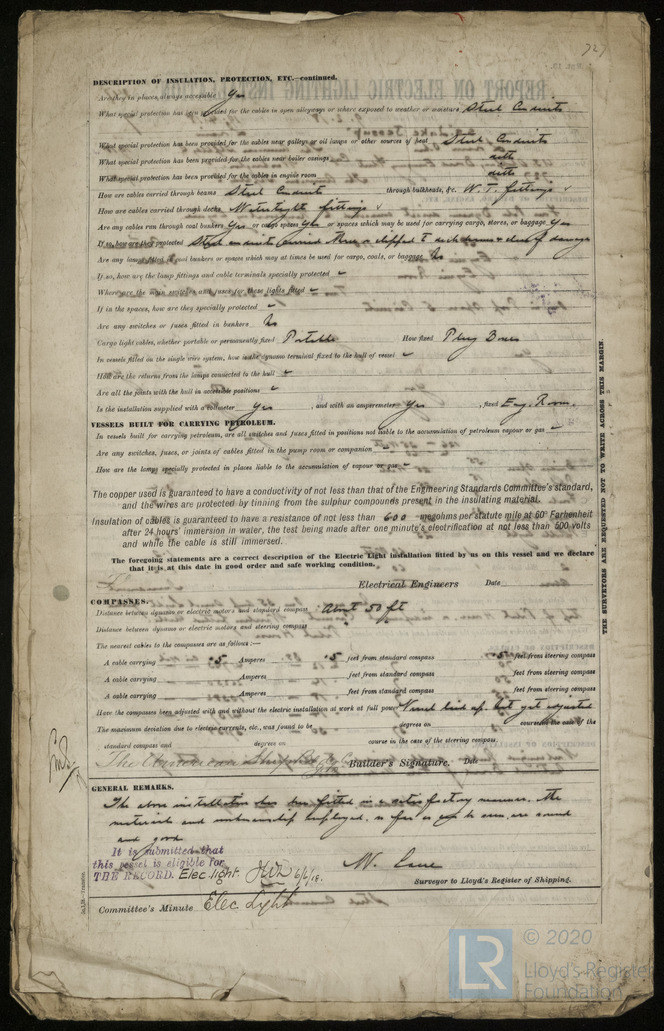 DESCRIPTION OF INSULATION, PROTECTION, ETC.—continued.
Are they in places always accessible Yes
What special protection has been provided for the cables in open alleyways or where exposed to weather or moisture Steel Conduits
What special protection has been provided for the cables near galleys or oil lamps or other sources of heat Steel Conduits
What special protection has been provided for the cables near boiler casings ditto
What special protection has been provided for the cables in engine room ditto
How are cables carried through beams Steel Conduits through bulkheads, &c. W. T. fittings ✓
How are cables carried through decks Watertight fittings ✓
Are any cables run through coal bunkers Yes or cargo spaces Yes or spaces which may be used for carrying cargo, stores, or baggage Yes
If so, how are they protected Steel conduits carried thro & clipped to deck beams & clear of damage
Are any lamps fitted in coal bunkers or spaces which may at times be used for cargo, coals, or baggage No
If so, how are the lamp fittings and cable terminals specially protected ✓
Where are the main switches and fuses for these lights fitted ✓
If in the spaces, how are they specially protected ✓
Are any switches or fuses fitted in bunkers No
Cargo light cables, whether portable or permanently fixed Portable How fixed Plug Boxes
In vessels fitted on the single wire system, how is the dynamo terminal fixed to the hull of vessel ✓
How are the returns from the lamps connected to the hull ✓
Are all the joints with the hull in accessible positions ✓
Is the installation supplied with a voltmeter Yes, and with an amperemeter Yes, fixed Eng. Room.
VESSELS BUILT FOR CARRYING PETROLEUM.
In vessels built for carrying petroleum, are all switches and fuses fitted in positions not liable to the accumulation of petroleum vapour or gas ✓
Are any switches, fuses, or joints of cables fitted in the pump room or companion
How are the lamps specially protected in places liable to the accumulation of vapour or gas ✓
The copper used is guaranteed to have a conductivity of not less than that of the Engineering Standards Committee's standard,
and the wires are protected by tinning from the sulphur compounds present in the insulating material.
Insulation of cables is guaranteed to have a resistance of not less than 600 megohms per statute mile at 60° Farhenheit
after 24 hours' immersion in water, the test being made after one minute's electrification at not less than 500 volts
and while the cable is still immersed.
The foregoing statements are a correct description of the Electric Light installation fitted by us on this vessel and we declare
that it is at this date in good order and safe working condition.
Electrical Engineers Date
COMPASSES.
Distance between dynamo or electric motors and standard compass About 50 ft
Distance between dynamo or electric motors and steering compass
The nearest cables to the compasses are as follows:—
A cable carrying .5 Amperes .5 feet from standard compass feet from steering compass
A cable carrying Amperes feet from standard compass feet from steering compass
A cable carrying Amperes feet from standard compass feet from steering compass
Have the compasses been adjusted with and without the electric installation at work at full power Vessel laid up. Not yet adjusted
The maximum deviation due to electric currents, etc., was found to be degrees on course in the case of the
standard compass and degrees on course in the case of the steering compass.
The American Shipbldg Co. Builder's Signature. Date
GENERAL REMARKS.
The above installation has been fitted in a satisfactory manner. The
materials and workmanship employed, so far as can be seen, are sound
and good
It is submitted that
this vessel is eligible for
THE RECORD. Elec light 6/6/18.
W. Cane
Surveyor to Lloyd's Register of Shipping.
Committee's Minute Elec Light
THE SURVEYORS ARE REQUESTED NOT TO WRITE ACROSS THIS MARGIN.
LR © 2020
Lloyd's Register
Foundation